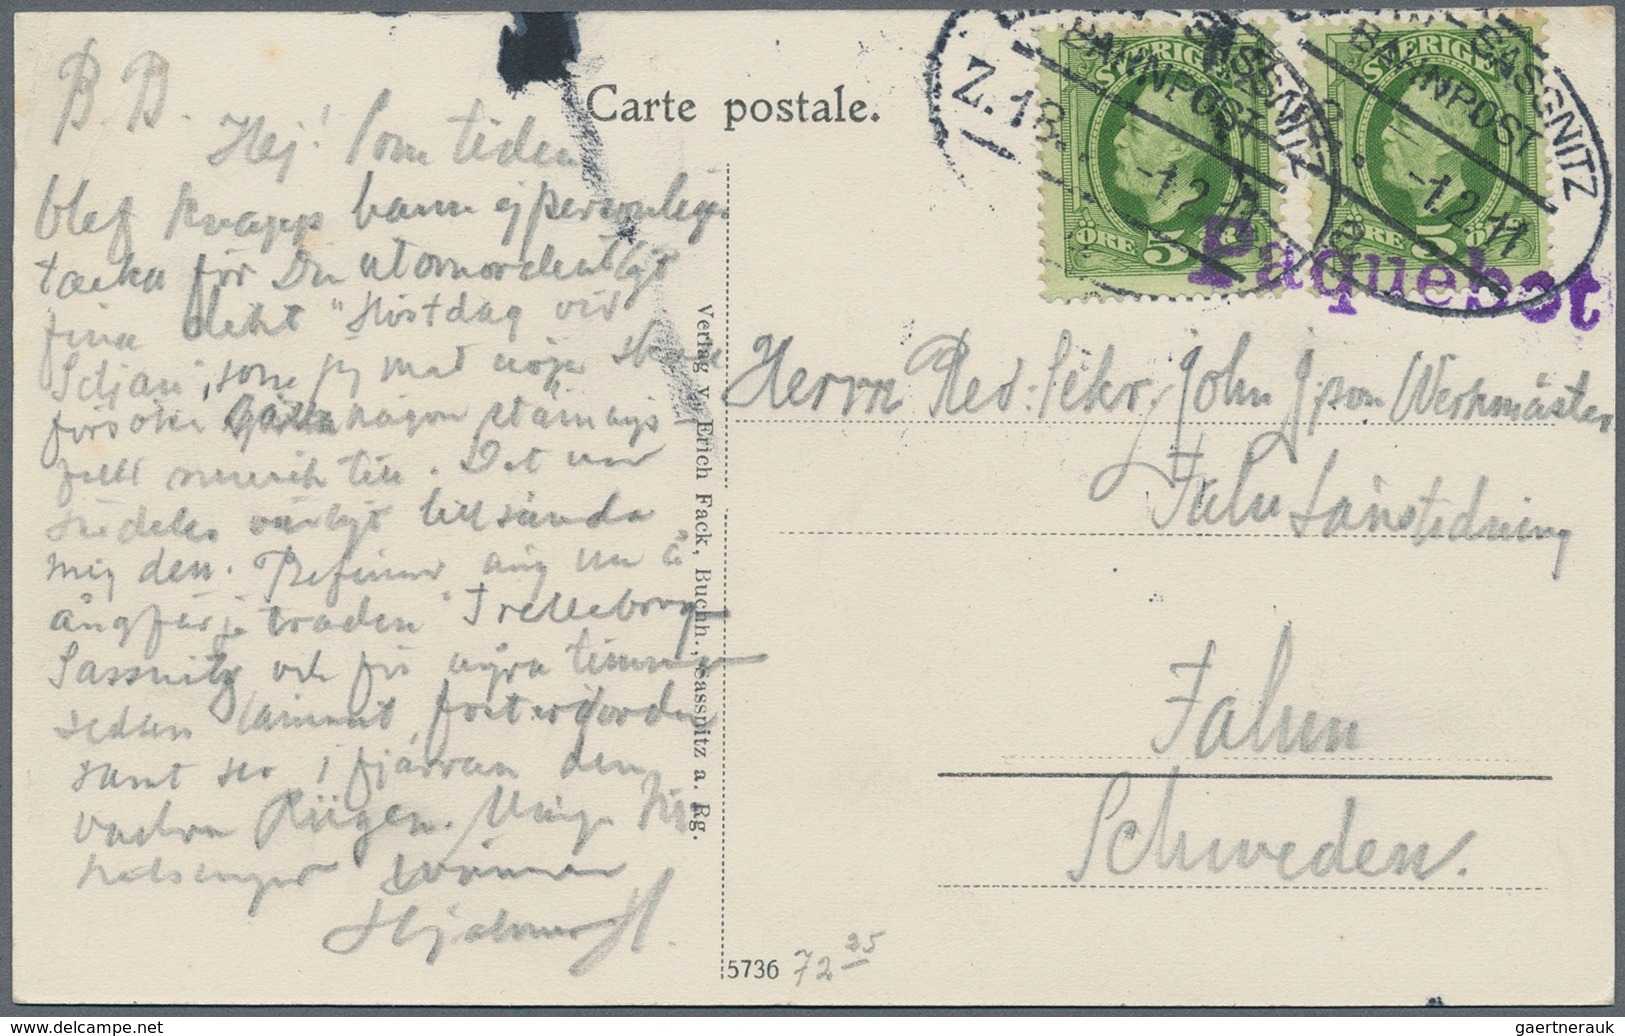 B. B.
Hej! Som tiden
blef knapp hann ej personligen
tacka för Din utomordentligt
fina dikt "Höstdag vid
Siljan", som jag med nöje skall
försöka någon stämnings-
full musik till. Det var
särdeles vänligt tillsända
mig den. Befinner mig nu å
ångfärjetraden Trelleborg
Sassnitz och för några timmar
sedan lämnat fosterjorden
samt ser i fjärran den
vackra Rügen. Många
hälsningar vännen
Hjalmar M.
Carte postale.
Verlag v. Erich Fack, Buchh., Sassnitz a. Rg.
5736
72 25
SVERIGE
ÖRE 5
SVERIGE
5 ÖRE
SASSNITZ
BAHNPOST
Z. 18.
-1.2.11
SASSNITZ
BAHNPOST
-1.2.11
Paquebot
Herrn Red.-Sekr. John Jpson Werkmäster
Falu Länstidning
Falun
Schweden.
delcampe.net
gaertnerauk